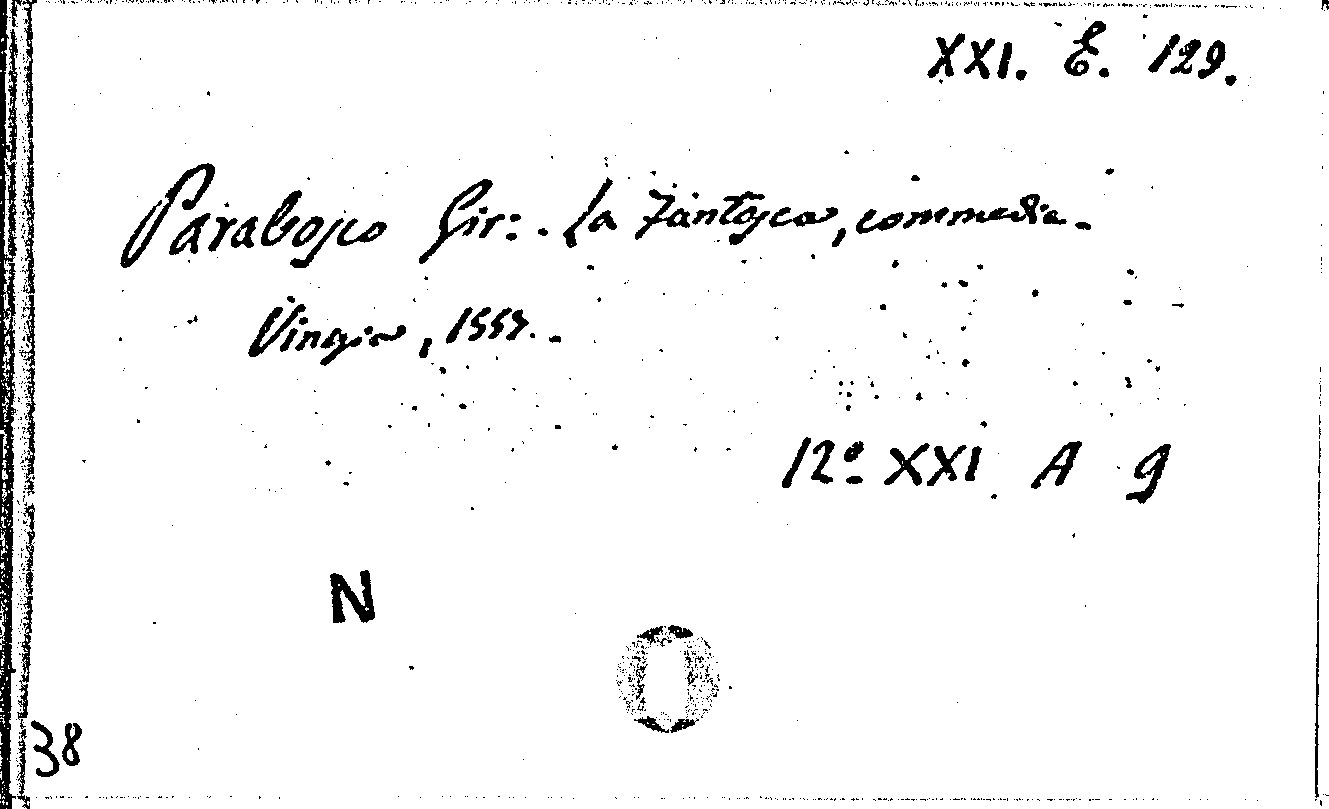 XXI. E. 129.
Parabosco Gir: . La Fantesca, commedia.
Vinegia, 1557.
12º XXI A 9
N
38